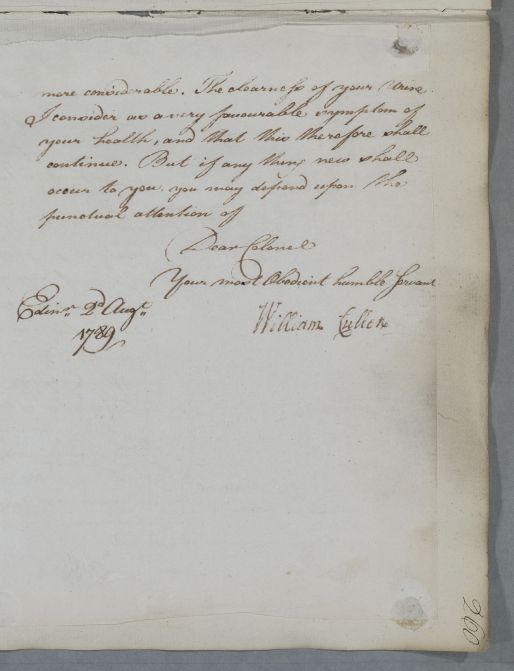 more considerable. The clearness of your Urine
I consider as a very favourable symptom of
your health, and that this therefore shall
continue. But if any thing new shall
occur to you, you may depend upon the
punctual attention of
Dear Colonel
Your most Obedient humble Servant
William Cullen
Edinr. 2d Augt.
1789
260